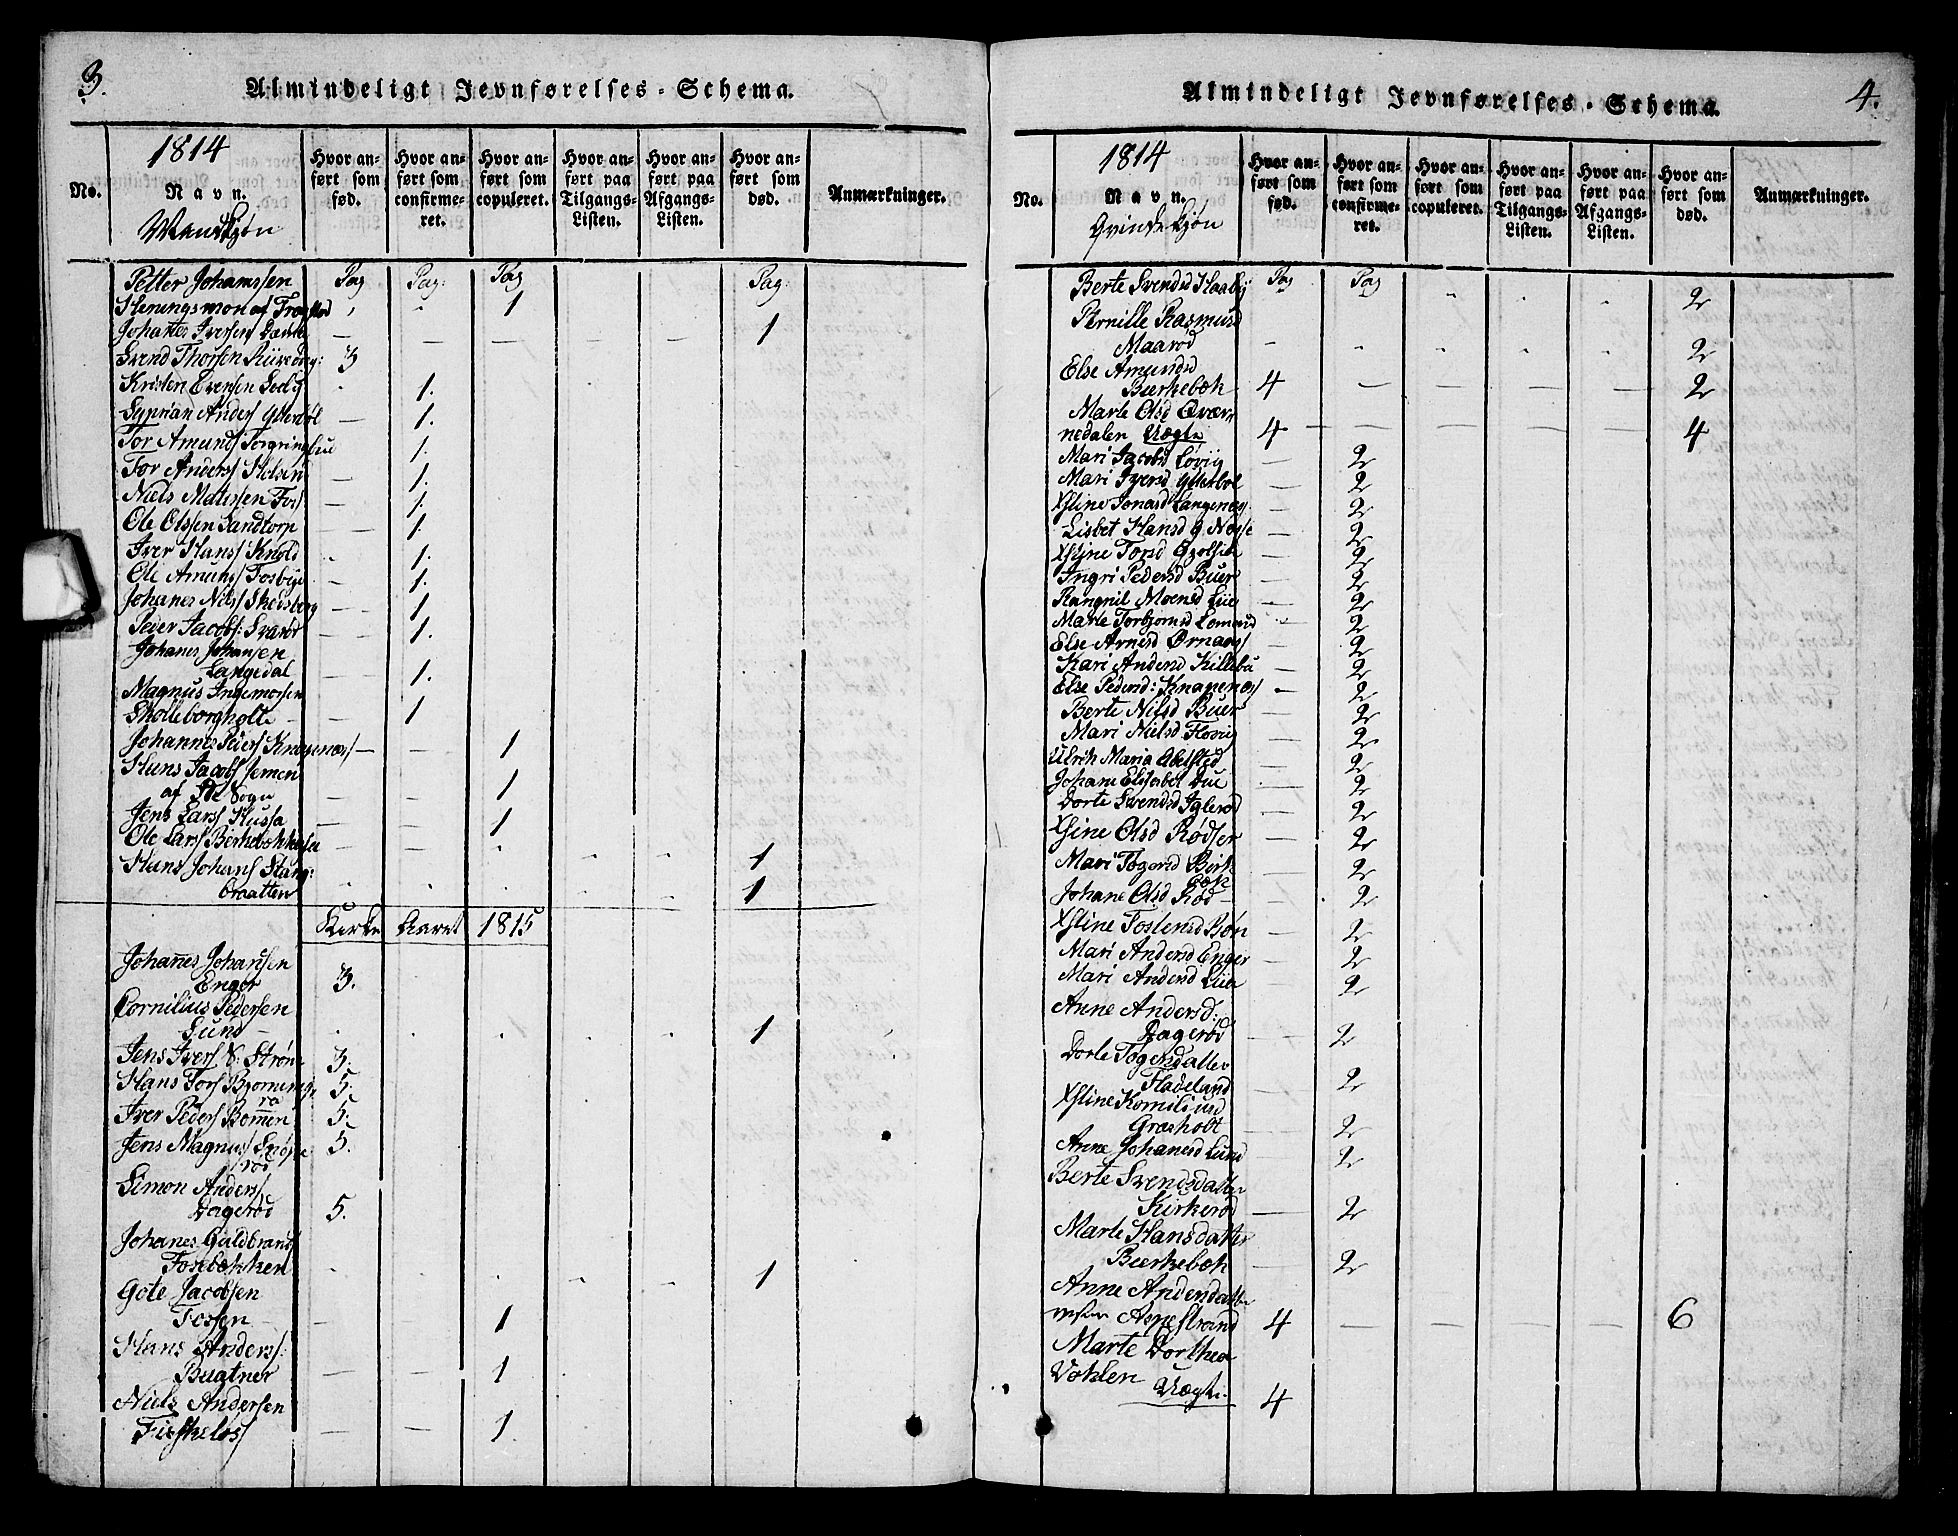 3.
Almindeligt Jevnførelses-Schema.
1814
No.
Navn.
Mandkjøn
Hvor anført som fød.
Hvor anført som confirmeret.
Hvor anført som copuleret.
Hvor anført paa Tilgangs-Listen.
Hvor anført paa Afgangs-Listen.
Hvor anført som død.
Anmærkninger.
Petter Johanssen Pag Pag: Pag Pag:
af 1
Johannes Iversen 1
Svend Thorsen 3
Kristen Evensen 1.
Syprian Anders Ytterbøl 1.
Tor Amunds 1.
Tor Anders 1.
Niels Matissen Fos 1.
Ole Olssen Sandtorp 1
Iver Hans Knold 1.
Ole Amuns Fosbye 1.
Johanes Nils Skedsberg 1
Peder Jacobs: Svarød 1.
Johanes Johansen
Langedal 1.
Magnus Ingemorsen
Skolleborgholte 1
Johannes Peders Knapenæs 1
Hans Jacobs
af Sogn 1
Jens Lars Hussa 1
Ole Lars 1
Hans Johans Stang:
braatten 1
Kirke Aaret 1815
Johannes Johansen
Enger 3.
Cornilius Pedersen
Lund 1
Jens Ivers N: Strøm 3.
Hans Tors 5.
Iver Peders Bommen 5.
Jens Magnus 5.
rød
Simon Anders
Dagerød 5.
Johanes Guldbrands
Fosebækken 1
Gote Jacobsen
Fossen 1
Hans Anders:
Bugtner 1
Niels Andersen
Fiskeløs 1.
4.
Almindeligt Jevnførelses-Schema.
1814
No.
Navn.
Qvindekjøn
Hvor anført som fød.
Hvor anført som confirmeret.
Hvor anført som copuleret.
Hvor anført paa Tilgangs-Listen.
Hvor anført paa Afgangs-Listen.
Hvor anført som død.
Anmærkninger.
Berte Svendsd Haaby Pag Pag 2
Pernille Rasmusd
Maarød 2
Else Amundsd
Bierkebæk 4 2
Marte Olsd Qvær
nedalen Uægte 4 4
Mari Jacobsd Løviig 2
Mari Iversd Ytterbøl 2
Xstine Jonasd Langenæs 2
Lisbet Hansd 2
Xstine Torsd 2
Ingri Pedersd Buer 2
Rangnil Moensd Lie 2
Marte Torbjornsd 2
Else Arnesd Ørnaas 2
Kari Andersd Killebu 2
Else Pedersd: Knapenæs 2
Berte Nilsd Buer 2
Mari Nielsd Floviig 2
Ulrik Maria Abelsted 2
Johane Elisabet Due 2
Dorte Svendsd Iglerød 2
Xstine Olsd Rødser 2
Mari Togersd Birk
bæk 2
Johane Olsd Rød 2
Xstine Tostensd Bøn 2
Mari Andersd Enger 2
Mari Andersd Lie 2
Anne Andersd:
Dagerød 2
Dorte Togersdatter
Fladeland 2
Xstine Korniliusd
Græsholt 2
Anne Johanesd Lund 2
Berte Svendsdatter
Kirkerød 2
Marte Hansdatter
Bierkebæk 2
Anne Andersdatter
Agnestrand 4 6
Marte Dorthea
Vohlen Uægte 4